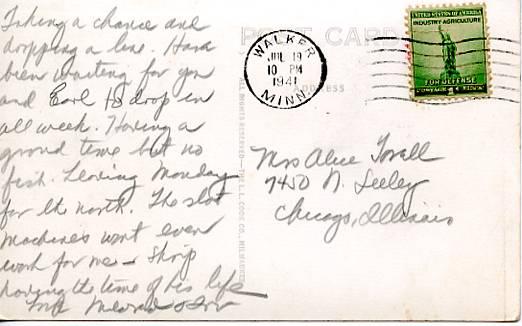 Taking a chance and
dropping a line. Have
been waiting for you
and Earl to drop in
all week. Having a
grand time but no
fish. Leaving Monday
for the north. The slot
machines wont even
work for me - 
having the time of his life
POST CARD
ADDRESS
WALKER
JUL 19
10 PM
1941
MINN.
UNITED STATES OF AMERICA
INDUSTRY AGRICULTURE
FOR DEFENSE
POSTAGE 1 CENT
Mrs Alice Torell
7450 N. Seeley
Chicago, Illinois